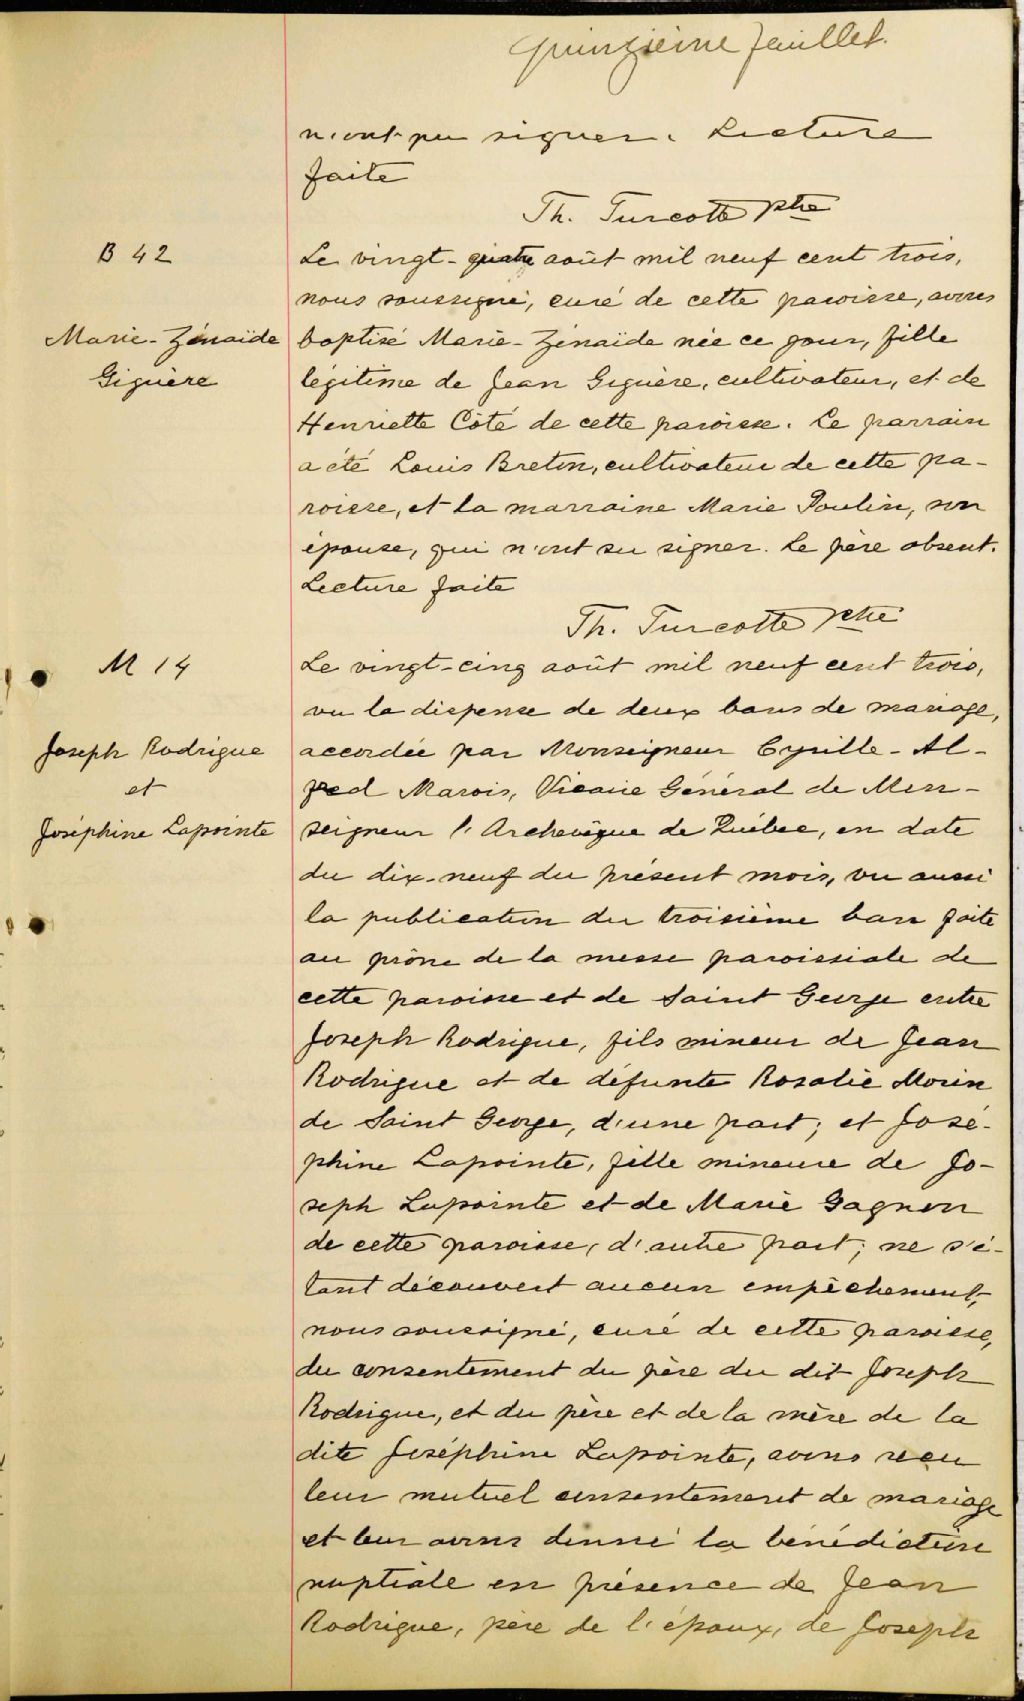 Quinzième feuillet.
n'ont pu signer. Lecture
faite
Th. Turcotte ptre
B 42
Marie-Zénaïde
Giguère
Le vingt-quatre août mil neuf cent trois,
nous soussigné, curé de cette paroisse, avons
baptisé Marie-Zénaïde née ce jour, fille
légitime de Jean Giguère, cultivateur, et de
Henriette Côté de cette paroisse. Le parrain
a été Louis Breton, cultivateur de cette pa-
roisse, et la marraine Marie Poulin, son
épouse, qui n'ont su signer. Le père absent.
Lecture faite
Th. Turcotte ptre
M 14
Joseph Rodrigue
et
Joséphine Lapointe
Le vingt-cinq août mil neuf cent trois,
vu la dispense de deux bans de mariage,
accordée par Monseigneur Cyrille-Al-
fred Marois, Vicaire Général de Mon-
seigneur l'Archevêque de Québec, en date
du dix-neuf du présent mois, vu aussi
la publication du troisième ban faite
au prône de la messe paroissiale de
cette paroisse et de Saint George entre
Joseph Rodrigue, fils mineur de Jean
Rodrigue et de défunte Rosalie Morin
de Saint George, d'une part; et José-
phine Lapointe, fille mineure de Jo-
seph Lapointe et de Marie Gagnon
de cette paroisse, d'autre part; ne s'é-
tant découvert aucun empêchement,
nous soussigné, curé de cette paroisse,
du consentement du père du dit Joseph
Rodrigue, et du père et de la mère de la
dite Joséphine Lapointe, avons reçu
leur mutuel consentement de mariage
et leur avons donné la bénédiction
nuptiale en présence de Jean
Rodrigue, père de l'époux, de Joseph